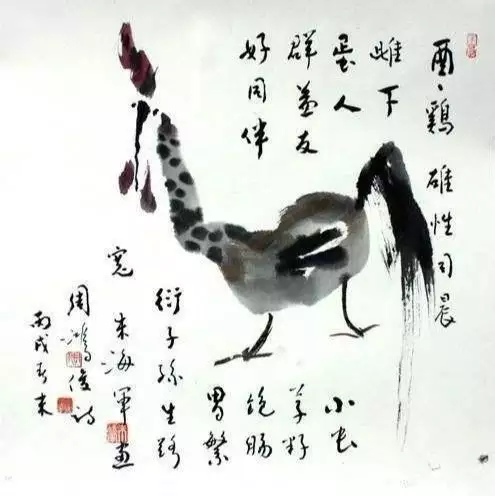 酉、鷄 雄性司晨
雌下
蛋人
群益友
好同伴
小虫
草籽
饱肠
胃繁
衍子孫生路
寬 朱海军画
周鴻俊诗
丙戌春末